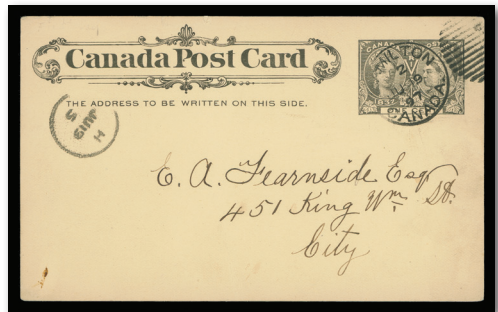 Canada Post Card
THE ADDRESS TO BE WRITTEN ON THIS SIDE.
CANADA
MILTON
CANADA
97
H
JU 9
5
E. A. Fearnside Esq
451 King Wm. St.
City